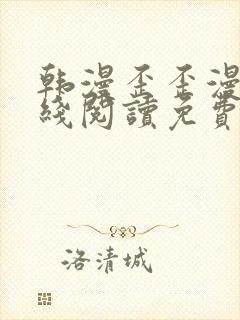 韩漫歪歪漫
綫閱讀免費
洛清城